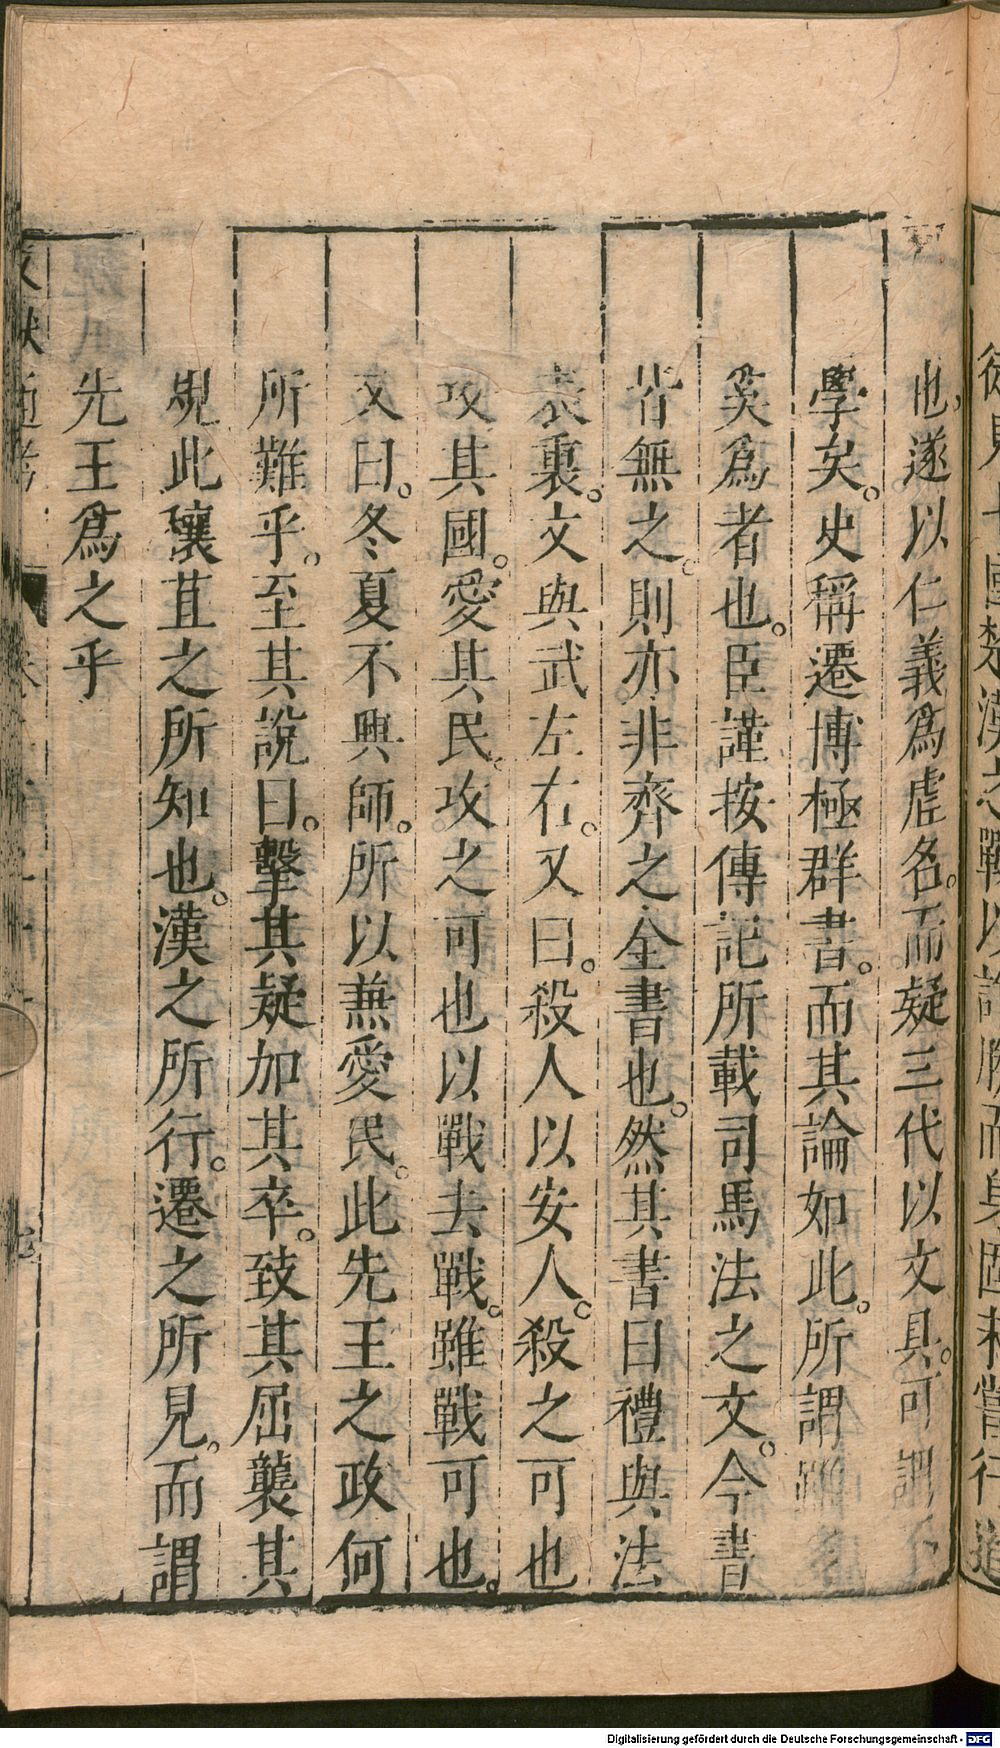 也遂以仁義爲虛名。而疑三代以文具。可謂不
學矣。史稱遷博極群書。而其論如此。所謂雖多
奚爲者也。臣謹按傳記所載司馬法之文。今書
皆無之。則亦非齊之全書也。然其書曰禮與法
表裏。文與武左右。又曰。殺人以安人。殺之可也
攻其國。愛其民。攻之可也以戰去戰。雖戰可也。
又曰。冬夏不興師。所以兼愛民。此先王之政何
所難乎。至其說曰。擊其疑加其卒。致其屈襲其
規此穰苴之所知也。漢之所行。遷之所見。而謂
先王爲之乎
Digitalisierung gefördert durch die Deutsche Forschungsgemeinschaft - DFG